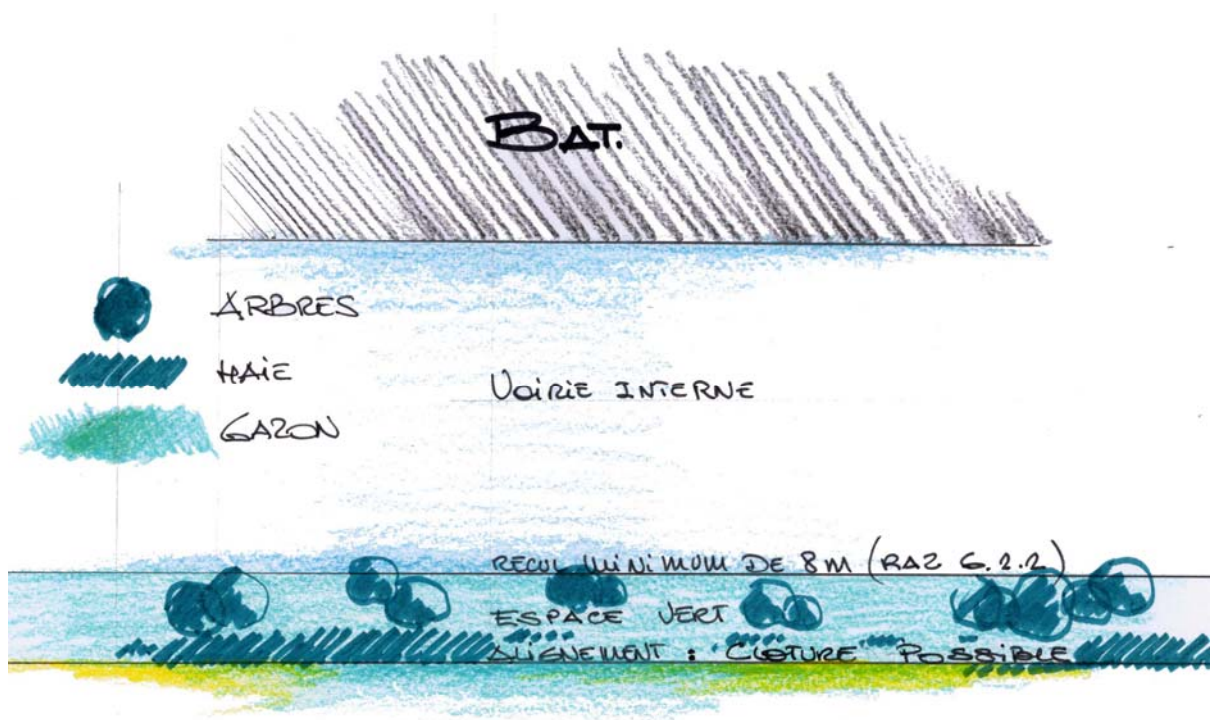 BAT.
ARBRES
HAIE
VOIRIE INTERNE
GAZON
RECUL MINIMUM DE 8M (RAZ 6.2.2)
ESPACE VERT
ALIGNEMENT : CLOTURE POSSIBLE